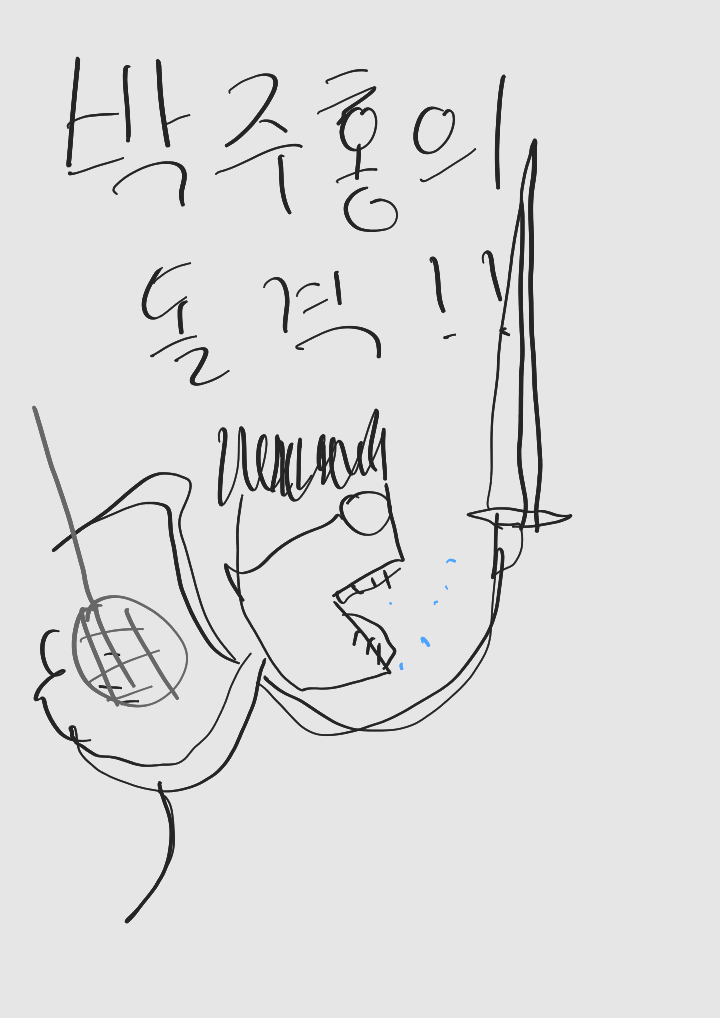 박주홍의
돌격!!